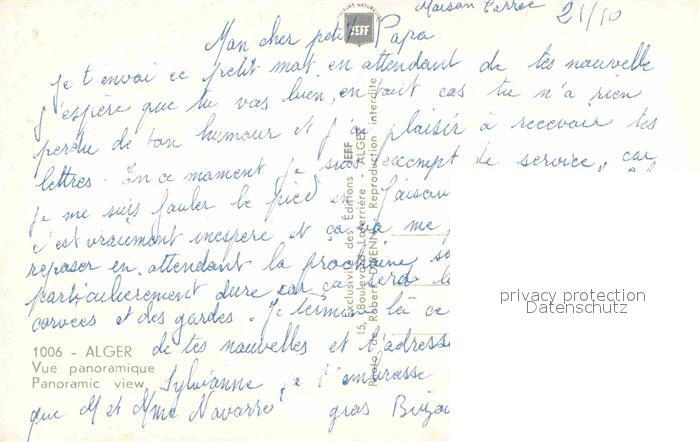 Maison Carrée 21/10
Mon cher petit Papa
je t envoi ce petit mot en attendant de tes nouvelle
j'espère que tu vas bien, en tout cas tu n'a rien
perdu de ton humour et j'ai plaisir à recevoir tes
lettres. En ce moment je suis exempt de service, car
je me suis fouler le pied en faisan
c'est vraiment inespere et ça va me
reposer en attendant la prochaine se
particulièrement dure car ça sera
corvees et des gardes. Je termine là ce
de tes nouvelles et l'adresse
Sylvianne, je t'embrasse
que M et Mme Navarro gros
1006 - ALGER
Vue panoramique
Panoramic view
JEFF
Exclusivité des Éditions JEFF
15, Boulevard Laferrière - ALGER
Photo de Robert Reproduction interdite
privacy protection
Datenschutz